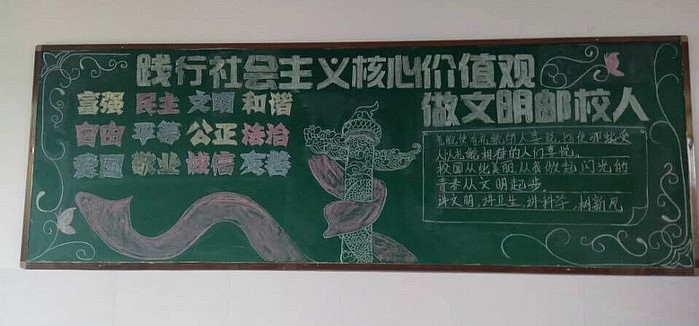 践行社会主义核心价值观
做文明邮校人
富强 民主 文明 和谐
自由 平等 公正 法治
爱国 敬业 诚信 友善
礼貌使有礼貌的人喜悦，也使那些受
人以礼貌相待的人们喜悦。
校园从此美丽从我做起闪光的
青春从文明起步。
讲文明，讲卫生，讲科学，树新风